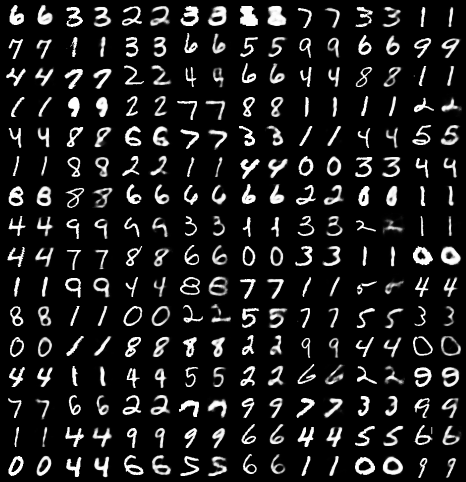 6 6 3 3 2 2 3 3 8 8 7 7 3 3 1 1
7 7 1 1 3 3 6 6 5 5 9 9 6 6 9 9
4 4 7 7 2 2 4 4 6 6 4 4 8 8 1 1
1 1 9 9 2 2 7 7 8 8 1 1 1 1 2 2
4 4 8 8 6 6 7 7 3 3 1 1 4 4 5 5
1 1 8 8 2 2 1 1 4 4 0 0 3 3 4 4
8 8 8 8 6 6 6 6 6 6 2 2 8 8 1 1
4 4 9 9 9 9 3 3 1 1 3 3 2 2 1 1
4 4 7 7 8 8 6 6 0 0 3 3 1 1 0 0
1 1 9 9 4 4 8 8 7 7 1 1 5 5 4 4
8 8 1 1 0 0 2 2 5 5 7 7 5 5 3 3
0 0 1 1 8 8 8 8 2 2 9 9 4 4 0 0
4 4 1 1 4 4 5 5 2 2 6 6 2 2 9 9
7 7 6 6 2 2 7 7 9 9 7 7 3 3 9 9
1 1 4 4 9 9 9 9 6 6 4 4 5 5 6 6
0 0 4 4 6 6 5 5 6 6 1 1 0 0 9 9